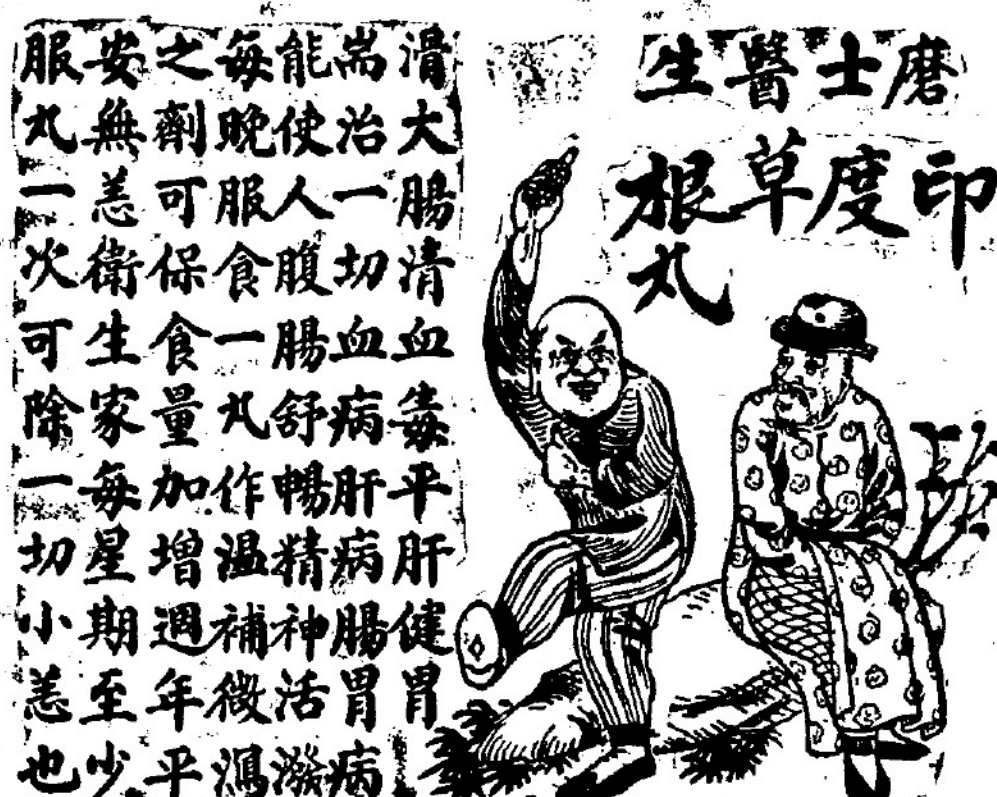 磨士醫生
印度草根丸
滑大腸清血毒平肝健胃
耑治一切血病肝病腸胃病
能使人腹腸舒暢精神活潑
每晚服食一丸作温補微瀉
之劑可保食量加增週年平
安無恙衛生家每星期至少
服丸一次可除一切小恙也